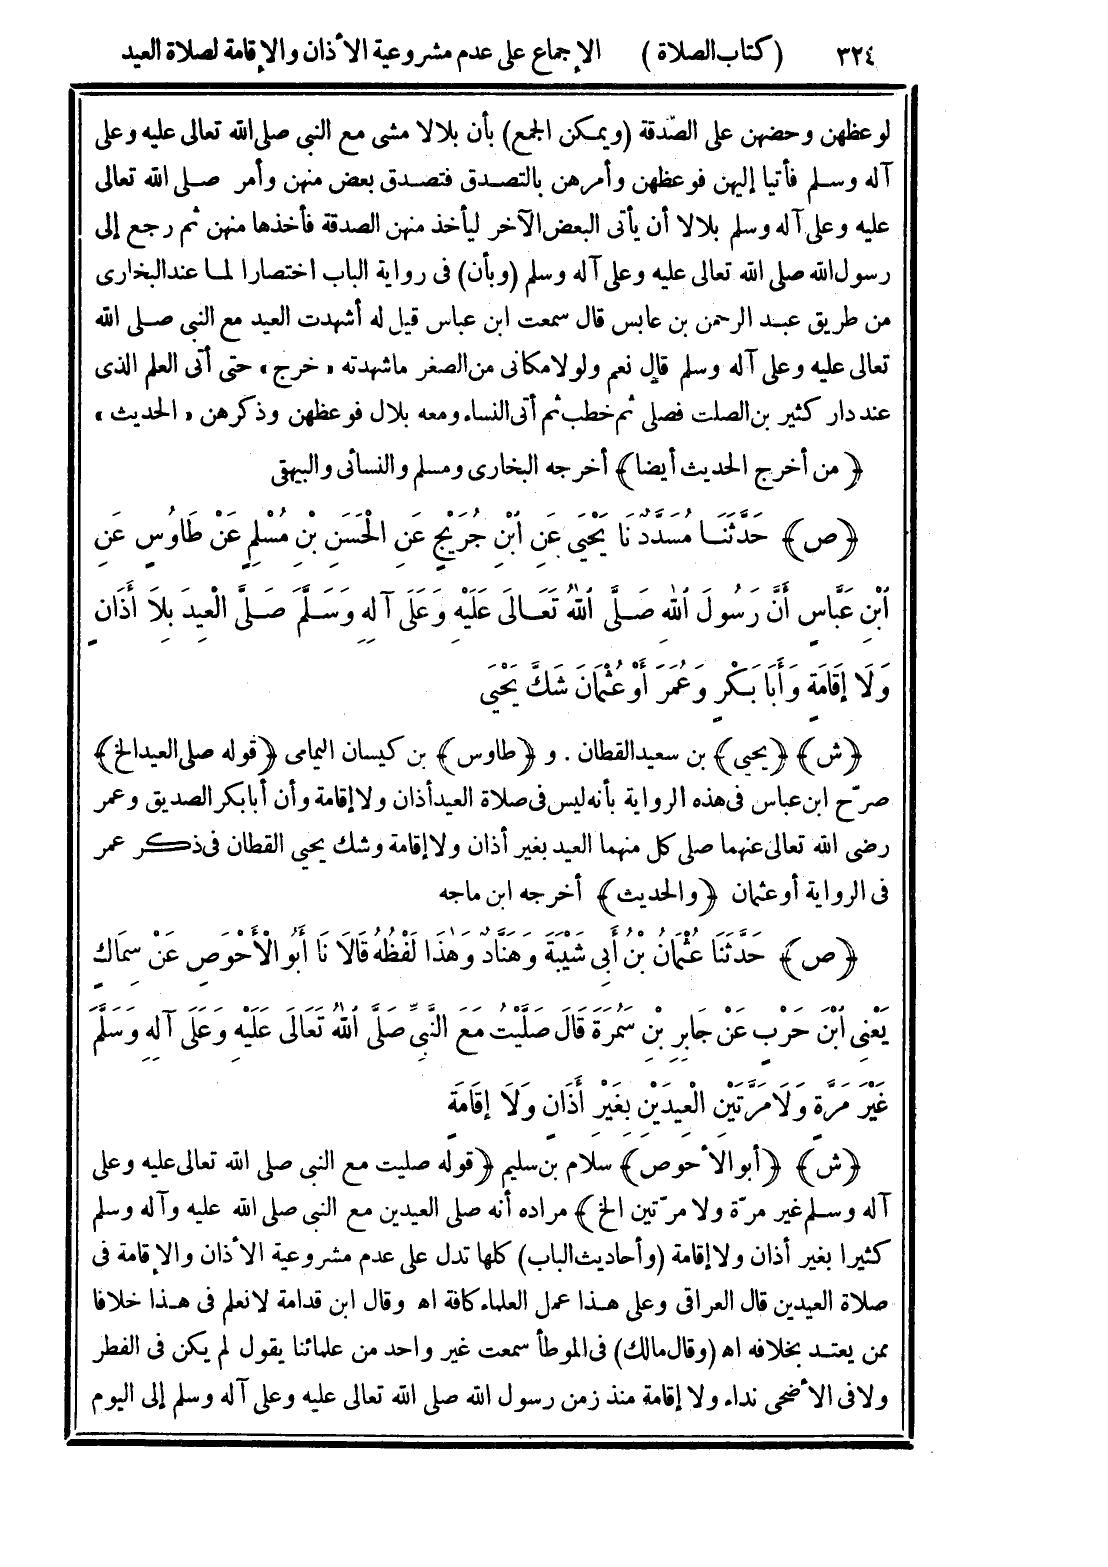 ٣٢٤ (كتاب الصلاة) الإجماع على عدم مشروعية الأذان والإقامة لصلاة العيد
لوعظهن وحضهن على الصّدقة (ويمكن الجمع) بأن بلالا مشى مع النبي صلى الله تعالى عليه وعلى
آله وسلم فأتيا إليهن فوعظهن وأمرهن بالتصدق فتصدق بعض منهن وأمر صلى الله تعالى
عليه وعلى آله وسلم بلالا أن يأتى البعض الآخر ليأخذ منهن الصدقة فأخذها منهن ثم رجع إلى
رسول الله صلى الله تعالى عليه وعلى آله وسلم (وبأن) فى رواية الباب اختصارا لما عند البخارى
من طريق عبد الرحمن بن عابس قال سمعت ابن عباس قيل له أشهدت العيد مع النبي صلى الله
تعالى عليه وعلى آله وسلم قال نعم ولولا مكانى من الصغر ماشهدته «خرج» حتى أتى العلم الذى
عند دار كثير بن الصلت فصلى ثم خطب ثم أتى النساء ومعه بلال فوعظهن وذكرهن «الحديث»
﴿من أخرج الحديث أيضا﴾ أخرجه البخارى ومسلم والنسائى والبيهقى
﴿ص﴾ حَدَّثَنَا مُسَدَّدٌ نَا يَحْيَى عَنِ ابْنِ جُرَيْجٍ عَنِ الْحَسَنِ بْنِ مُسْلِمٍ عَنْ طَاوُسٍ عَنِ
ابْنِ عَبَّاسٍ أَنَّ رَسُولَ اللهِ صَلَّى اللهُ تَعَالَى عَلَيْهِ وَعَلَى آلِهِ وَسَلَّمَ صَلَّى الْعِيدَ بِلَا أَذَانٍ
وَلَا إِقَامَةٍ وَأَبَا بَكْرٍ وَعُمَرَ أَوْ عُثْمَانَ شَكَّ يَحْيَى
﴿ش﴾ ﴿يحيى﴾ بن سعيد القطان . و ﴿طاوس﴾ بن كيسان اليمامى ﴿قوله صلى العيد الخ﴾
صرّح ابن عباس فى هذه الرواية بأنه ليس فى صلاة العيد أذان ولا إقامة وأن أبا بكر الصديق وعمر
رضى الله تعالى عنهما صلى كل منهما العيد بغير أذان ولا إقامة وشك يحيى القطان فى ذكر عمر
فى الرواية أو عثمان ﴿والحديث﴾ أخرجه ابن ماجه
﴿ص﴾ حَدَّثَنَا عُثْمَانُ بْنُ أَبِي شَيْبَةَ وَهَنَّادٌ وَهَذَا لَفْظُهُ قَالَا نَا أَبُو الْأَحْوَصِ عَنْ سِمَاكٍ
يَعْنِي ابْنَ حَرْبٍ عَنْ جَابِرِ بْنِ سَمُرَةَ قَالَ صَلَّيْتُ مَعَ النَّبِيِّ صَلَّى اللهُ تَعَالَى عَلَيْهِ وَعَلَى آلِهِ وَسَلَّمَ
غَيْرَ مَرَّةٍ وَلَا مَرَّتَيْنِ الْعِيدَيْنِ بِغَيْرِ أَذَانٍ وَلَا إِقَامَةٍ
﴿ش﴾ ﴿أبو الأحوص﴾ سلام بن سليم ﴿قوله صليت مع النبى صلى الله تعالى عليه وعلى
آله وسلم غير مرّة ولا مرّتين الخ﴾ مراده أنه صلى العيدين مع النبى صلى الله عليه وآله وسلم
كثيرا بغير أذان ولا إقامة (وأحاديث الباب) كلها تدل على عدم مشروعية الأذان والإقامة فى
صلاة العيدين قال العراقى وعلى هذا عمل العلماء كافة اه وقال ابن قدامة لا نعلم فى هذا خلافا
ممن يعتد بخلافه اه (وقال مالك) فى الموطأ سمعت غير واحد من علمائنا يقول لم يكن فى الفطر
ولا فى الأضحى نداء ولا إقامة منذ زمن رسول الله صلى الله تعالى عليه وعلى آله وسلم إلى اليوم